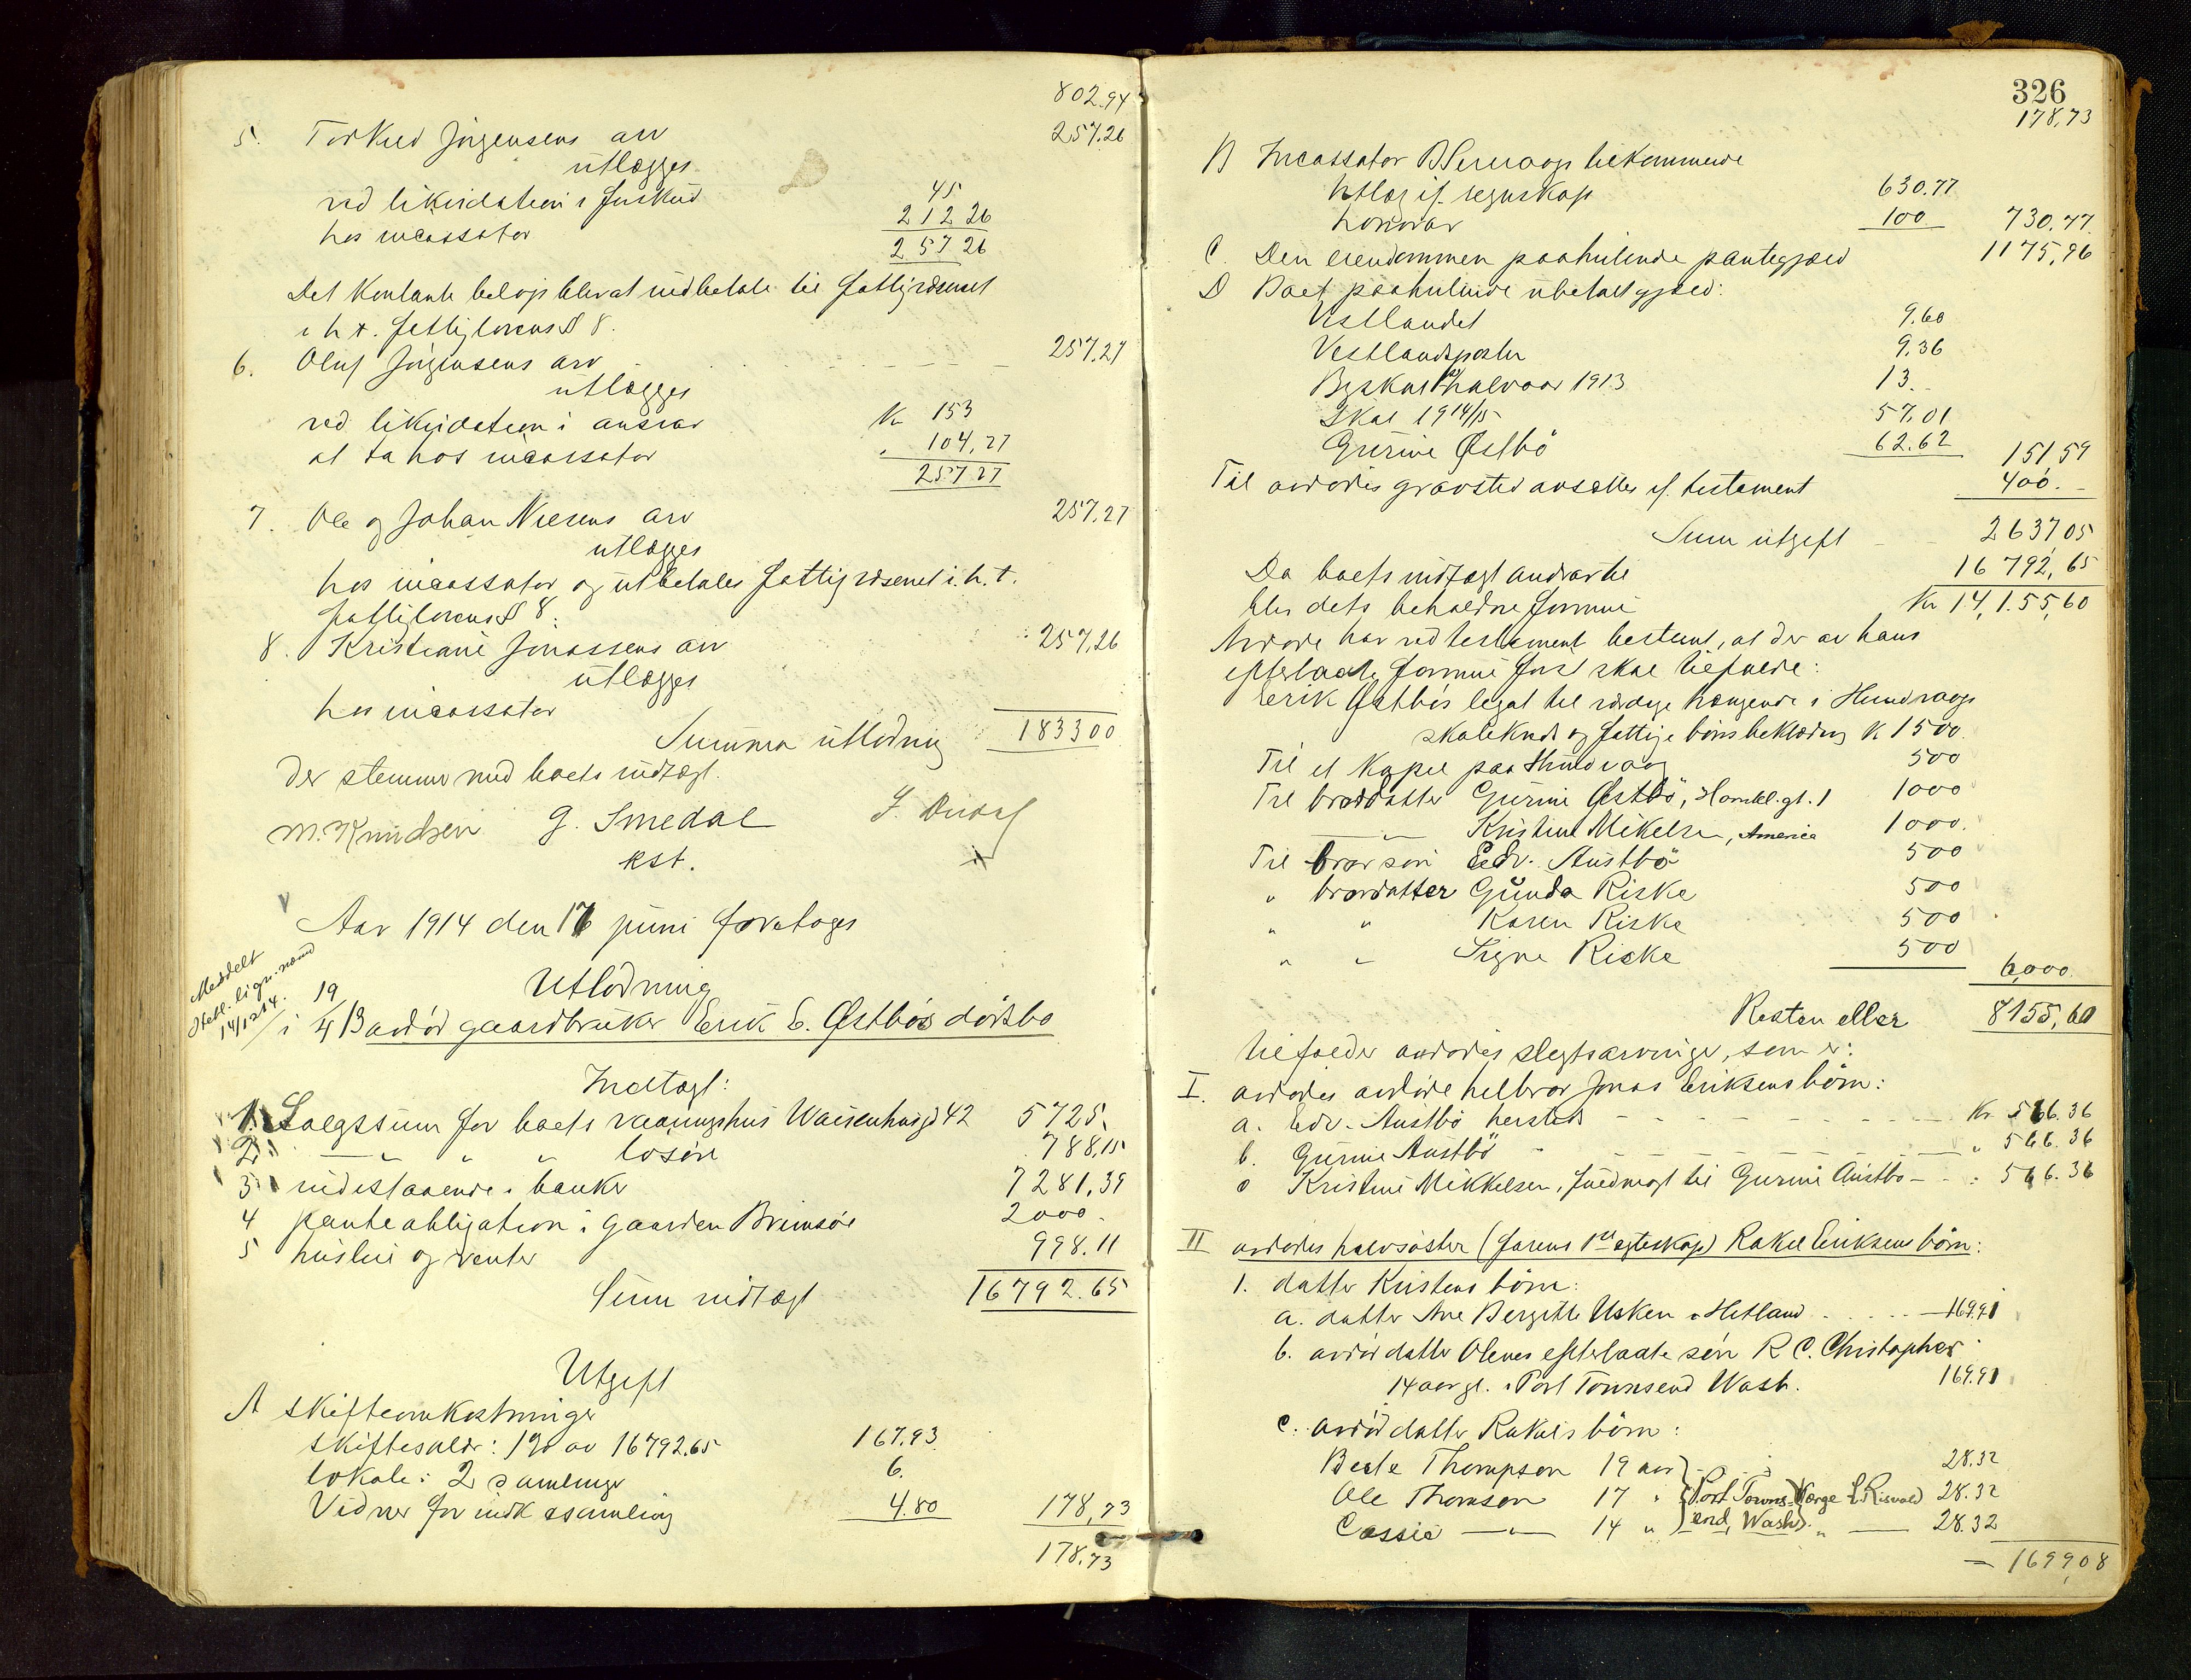 802.94
5. Torkied Jörgensens arv 257.26
utlægges
ved likvidation i forskud 45
hos incassator 212 26
257 26
Det kontante belöp blev at indbetale til fattigvæsenet
i h. t. fattiglovens § 8.
6. Oluf Jörgensens arv 257.27
utlægges
ved likvidation i ansvar Kr 153
at ta hos incassator " 104,27
257 27
7. Ole og Johan Niesens arv 257.27
utlægges
hos incassator og utbetales fattigvæsenet i. h. t.
fattiglovens § 8.
8. Kristiane Jonassens arv 257,26
utlægges
hos incassator
Summa utlodning 1833 00
der stemmer med boets indtægt.
M. Knudsen G. Smedal
kst.
Aar 1914 den 16 juni foretoges
Utlodning
Meddelt
Hetl. lign. nævnd
14/12 14.
i 19/4 13 avdöd gaardbruker Erik E. Østbös dödsbo
Indtægt:
1 Salgssum for boets vaaningshus Waisenhusgd 42 5725.
2 — " " " lösöre 788,15
3 indestaaende i banker 7281,39
4 panteobligation i gaarden Brimsöe 2000.
5 husleie og renter 998.11
Sum indtægt 16792.65
Utgift
A skifteomkostninger
skiftesalær: 1% av 16792.65 167.93
lokale: 2 samlinger 6.
Vidner for indk. samling 4.80 178,73
178,73
326
178,73
B Incassator tilkommende
Utlæg if. regnskap 630.77
honorar 100 730.77
C. Den eiendommen paahvilende pantegjæld 1175,96
D Boet paahvilende ubetalt gjæld:
Vestlandet 9.60
Vestlandsposten 9.36
Byskat 1ste halvaar 1913 13.-
Skat 1914/15 57,01
Gurine Østbö 62.62 151 59
Til avdödes gravsted avsættes if. testament 400.-
Sum utgift 2637 05
Da boets indtægt andrar til 16 792,65
blir dets beholdne formue Kr 14,155,60
Avdöde har ved testament bestemt, at der av hans
efterladte formue först skal tilfalde:
Erik Østbös legat til værdige trængende i Hundvaags
skolekreds og fattige börns beklædning K 1500.
Til et kapel paa Hundvaag 500
Til brordatter Gurine Østbö, Hornkl. gt. 1 1000
— " — Kristine Mikelsen, America 1000.
Til brorsön Edv. Austbö 500
" brordatter Gunda Riske 500
" " Karen Riske 500
" " Signe Riske 500 6,000.
Resten eller 8155,60
tilfalder avdödes slegtsarvinger, som er:
I. avdödes avdöde helbror Jonas Eriksens börn:
a. Edv. Austbö hersteds Kr 566.36
b. Gurine Austbö " 566.36
c Kristine Mikkelsen, fuldmagt til Gurine Austbö - " 566.36
II avdödes halvsöster (farens 1ste egteskap) Rakel Eriksens börn:
1. datter Kristens börn:
a. datter Ane Bergitte Usken i Hetland 169.91
b. avdöd datter Olenes efterladte sön R C. Christopher
14 aar gl. i Port Townsend Wash. 169.91
c. avdöd datter Rakels börn:
Beate Thompson 19 aar 28.32
Ole Thomson 17 " Port Towns- Værge L. Risvold 28.32
Cassie — " — 14 " end, Wash. " — 28.32
- 1699,08